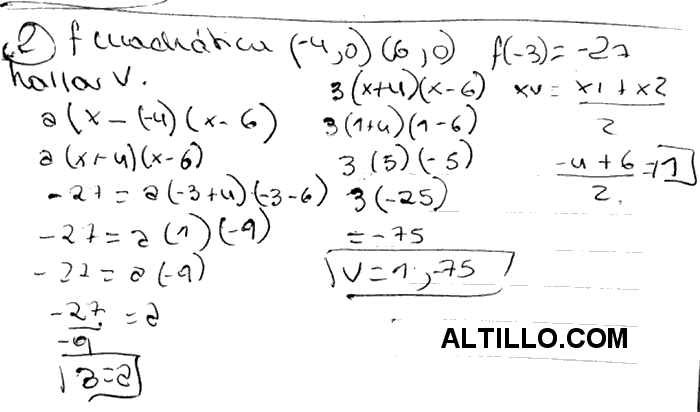 2) f cuadrática (-4,0) (6,0) f(-3) = -27
hallar V.
a(x-(-4)(x-6)
a(x+4)(x-6)
-27 = a(-3+4)(-3-6)
-27 = a(1)(-9)
-27 = a(-9)
-27/-9 = a
3=a
3(x+4)(x-6)
3(1+4)(1-6)
3(5)(-5)
3(-25)
= -75
V=1,-75
xv = x1+x2/2
-4+6/2. =1
ALTILLO.COM